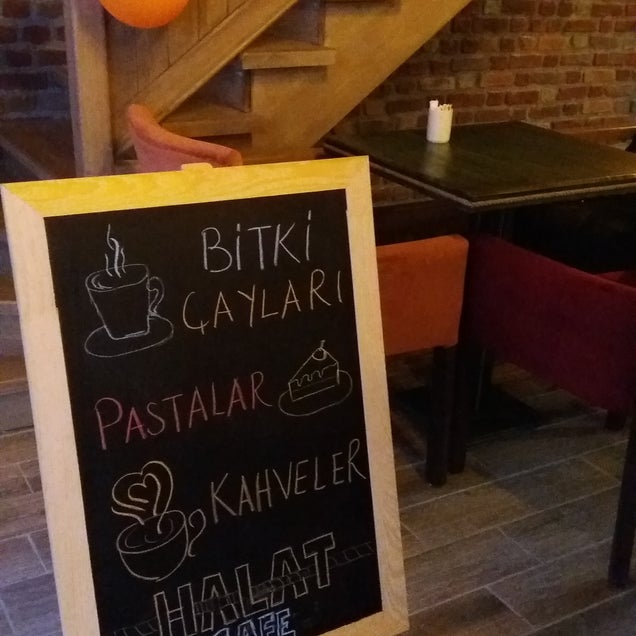 BİTKİ
ÇAYLARI
PASTALAR
KAHVELER
HALAT
CAFE